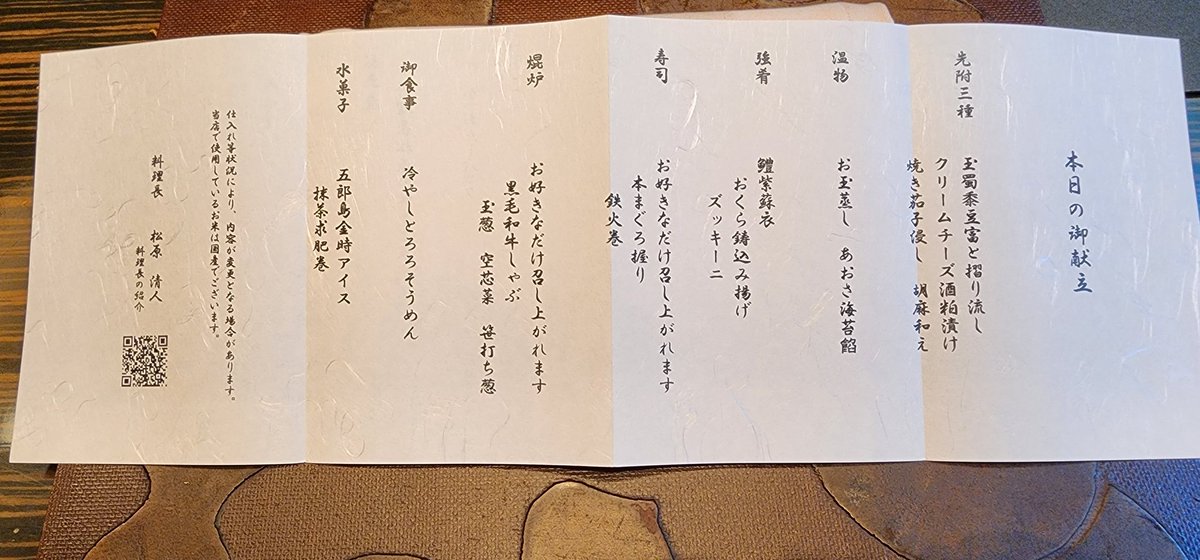 本日の御献立
先附三種
玉蜀黍豆富と摺り流し
クリームチーズ酒粕漬け
焼き茄子浸し 胡麻和え
温物
お玉蒸し あおさ海苔餡
強肴
鱧紫蘇衣
おくら鋳込み揚げ
ズッキーニ
寿司
お好きなだけ召し上がれます
本まぐろ握り
鉄火巻
焜炉
お好きなだけ召し上がれます
黒毛和牛しゃぶ
玉葱 空芯菜 笹打ち葱
御食事
冷やしとろろそうめん
水菓子
五郎島金時アイス
抹茶求肥巻
仕入れ等状況により、内容が変更となる場合があります。
当店で使用しているお米は国産でございます。
料理長 松原 清人
料理長の紹介